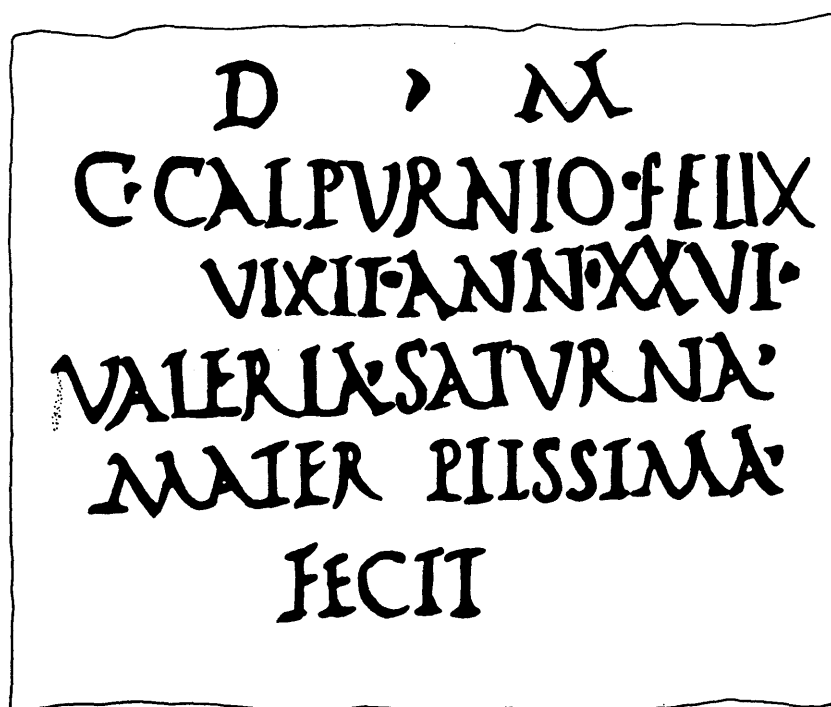 D , M
C·CALPVRNIO·FELIX
VIXIT·ANN·XXVI·
VALERIA·SATVRNA·
MATER PIISSIMA·
FECIT